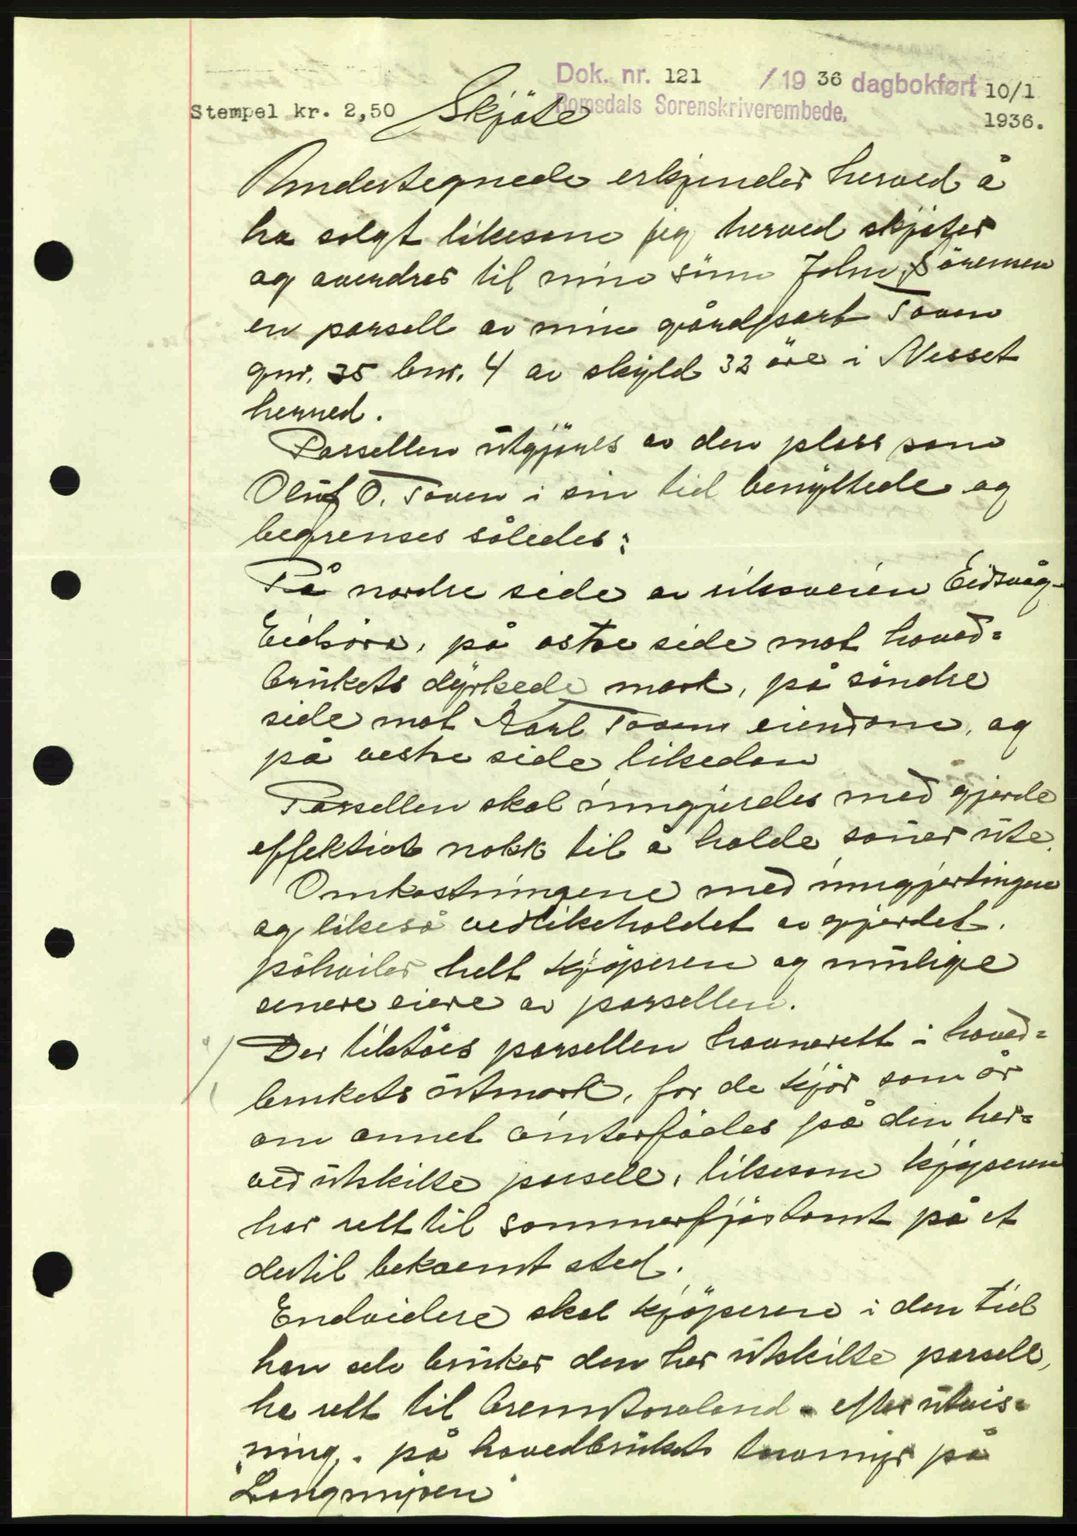 Dok. nr. 121 /19 36 dagbokført 10/1
Stempel kr. 2,50 Skjøte Romsdals Sorenskriverembede. 1936.
Undertegnede erkjender herved å
ha solgt likesom jeg herved skjöter
og averdrar til min sönn John Sörensen
en parsell av min gårdpart Toven
gnr. 35 bnr. 4 av skyld 32 öre i Nesset
herred.
Parsellen utgjöres av den plass som
Oluf O. Toven i sin tid benyttede og
begrenses således:
På nordre side av riksveien Eidsvåg-
Eidsöra, på østre side mot hoved=
brukets dyrkede mark, på söndre
side mot Karl Tovens eiendom, og
på vestre side likedan
Parsellen skal inngjerdes med gjerde
effektivt nokk til å holde sauer ute.
Omkostningene med inngjerdingen
og likeså vedlikeholdet av gjerdet.
påhviler helt kjöperen og mulige
senere eiere av parsellen.
Der tilståes parsellen havnerett i hoved=
brukets utmark, for de kjör som år
om annet vinterfödes på den her=
ved utskilte parsell, likesom kjöperen
har rett til sommerfjöstomt på et
dertil bekvemt sted.
Endvidere skal kjöperen i den tid
han selv bruker den her utskilte parsell,
ha rett til brenntorvland efter utvis=
ning, på hovedbrukets torvmyr på
"Langmyren"